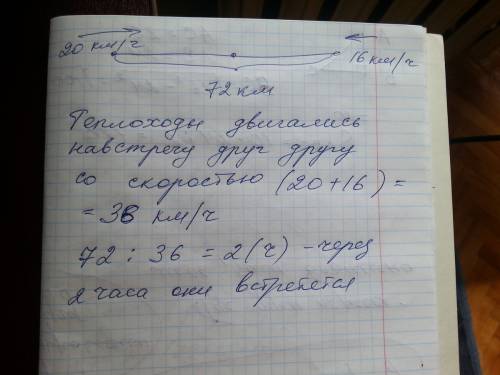 20 км/ч
16 км/ч
72 км
Теплоходы двигались
навстречу друг другу
со скоростью (20+16) =
= 36 км/ч
72 : 36 = 2 (ч) - через
2 часа они встретятся